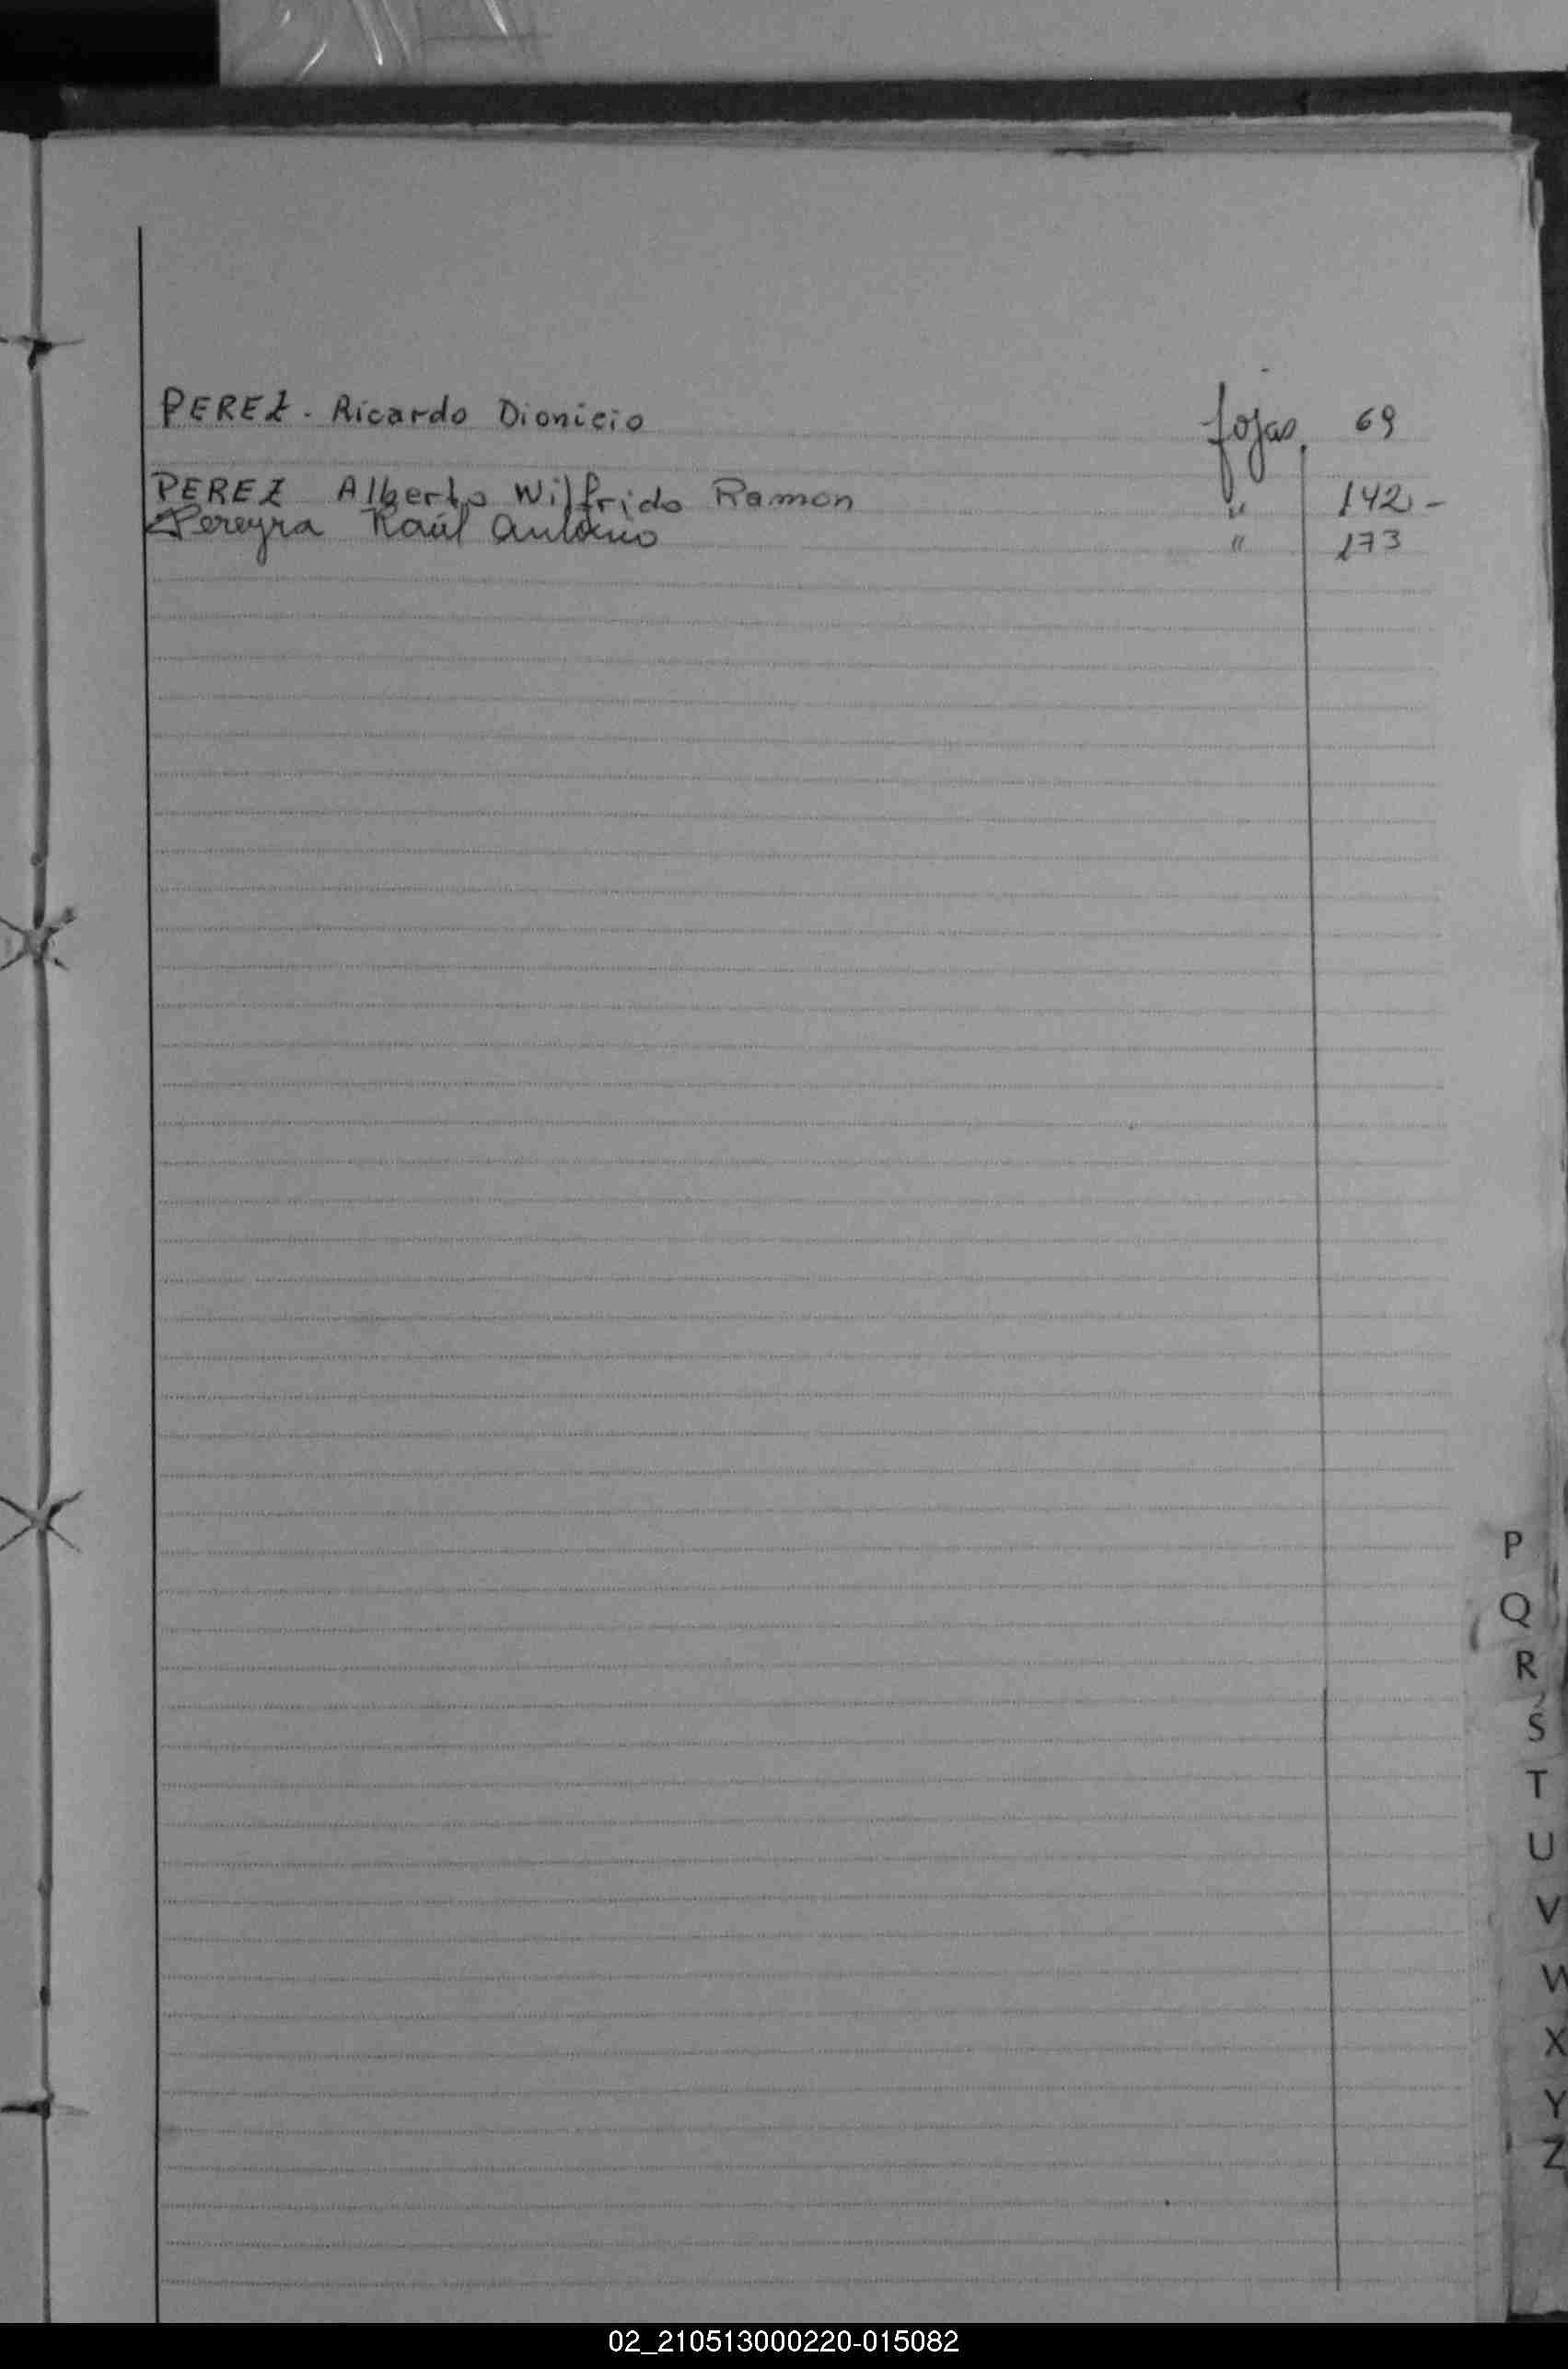 PEREZ. Ricardo Dionicio fojas. 69
PEREZ Alberto Wilfrido Ramon " 142.-
Pereyra Raúl Antonio " 173
P
Q
R
S
T
U
V
W
X
Y
Z
02_210513000220-015082